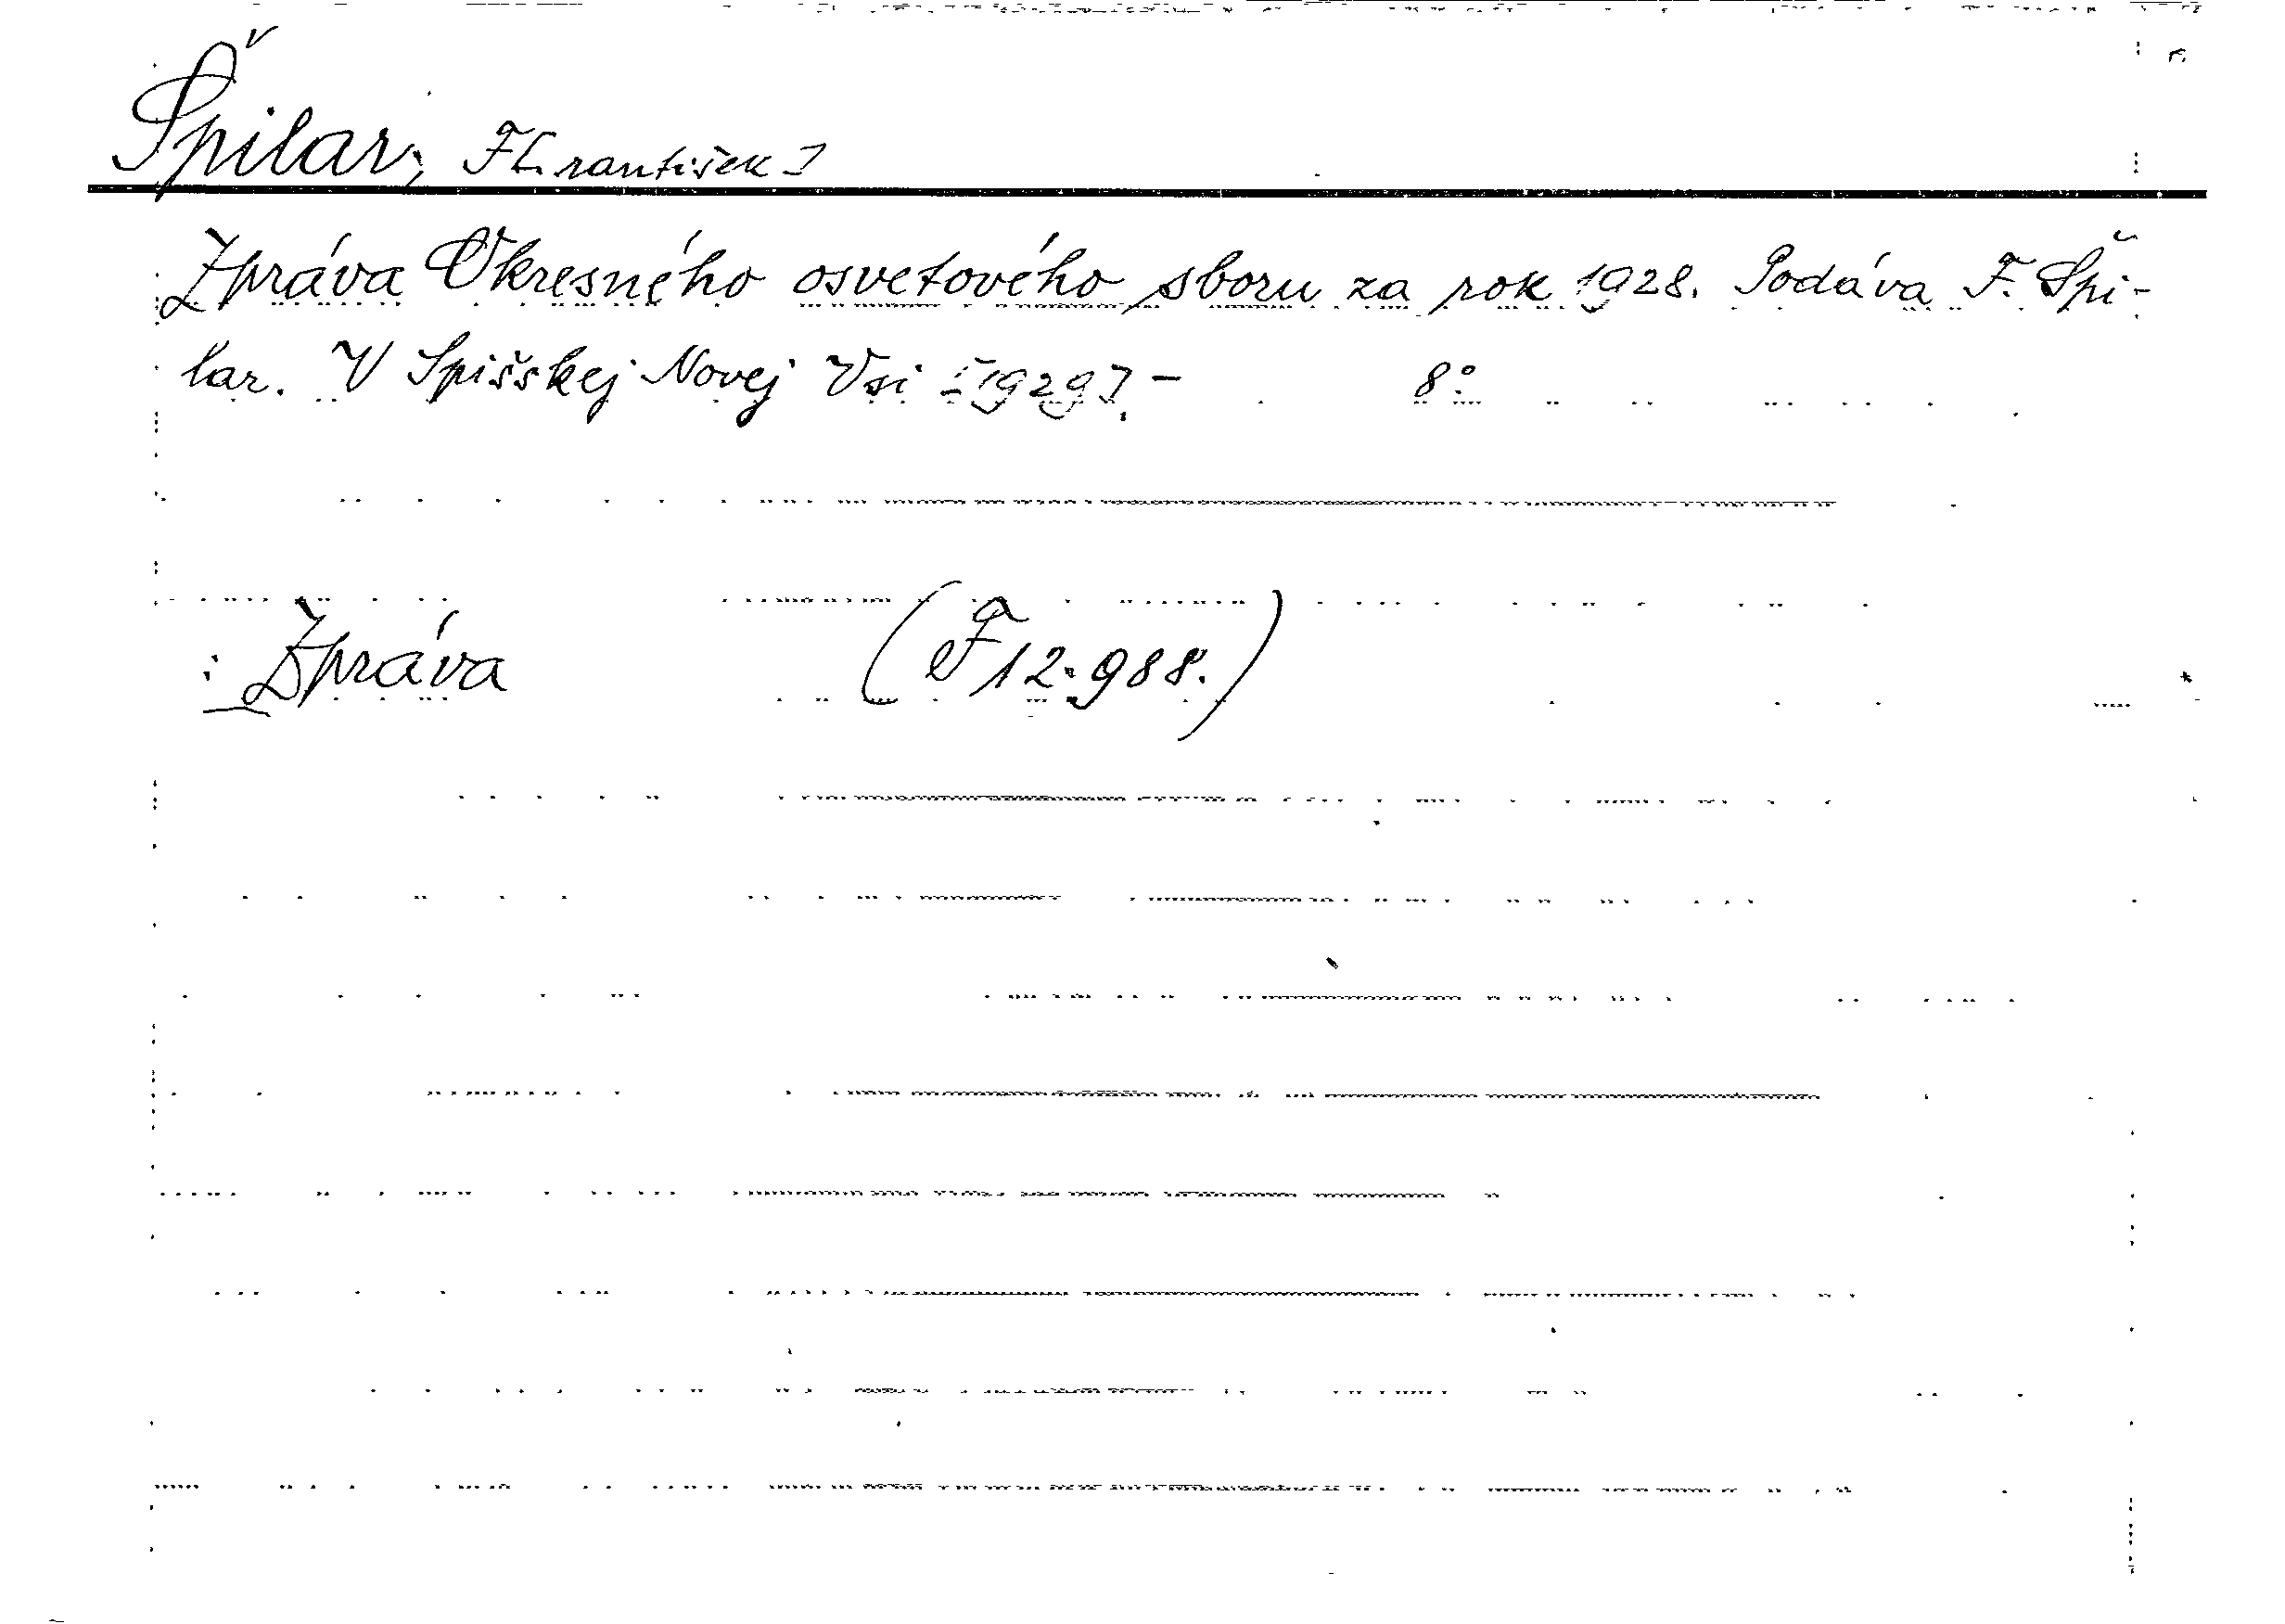 Špilar, F[rantišek]
Zpráva Okresného osvetového sboru za rok 1928. Podáva F. Špi-
lar. V Spišskej Novej Vsi [1929]. – 8°
Zpráva (F 12.988.)